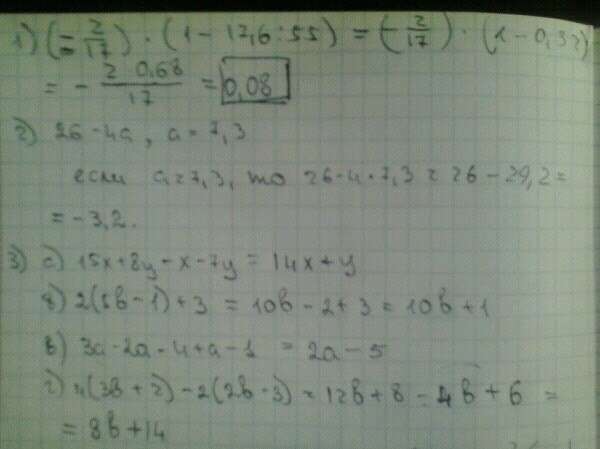 1) (-2/17) · (1 - 17,6 : 55) = (-2/17) · (1 - 0,32)
= - 2 0,68/17 = 0,08
2) 26 - 4a, a = 7,3
если a = 7,3, то 26 - 4 · 7,3 = 26 - 29,2 =
= -3,2.
3) а) 15x + 8y - x - 7y = 14x + y
б) 2(5b - 1) + 3 = 10b - 2 + 3 = 10b + 1
в) 3a - 2a - 4 + a - 1 = 2a - 5
г) 4(3b + 2) - 2(2b - 3) = 12b + 8 - 4b + 6 =
= 8b + 14